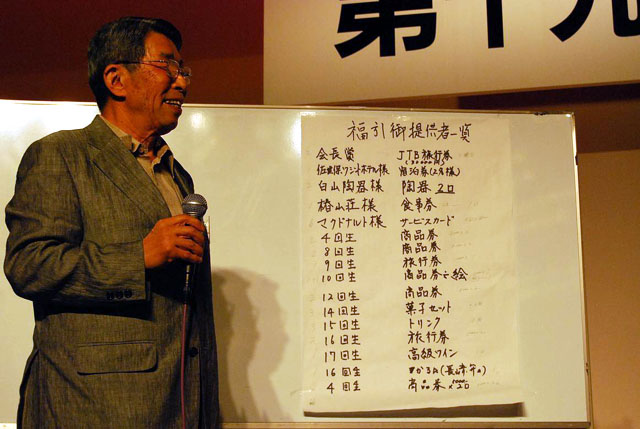 第十九
福引御提供者一覧
会長賞 JTB旅行券
佐世保ワシントンホテル様 宿泊券(2名様)
白山陶器様 陶器 2口
椿山荘様 食事券
マクドナルド様 サービスカード
4回生 商品券
8回生 商品券
9回生 旅行券
10回生 商品券と絵
12回生 商品券
14回生 菓子セット
15回生 ドリンク
16回生 旅行券
17回生 高級ワイン
16回生
4回生 商品券 2口